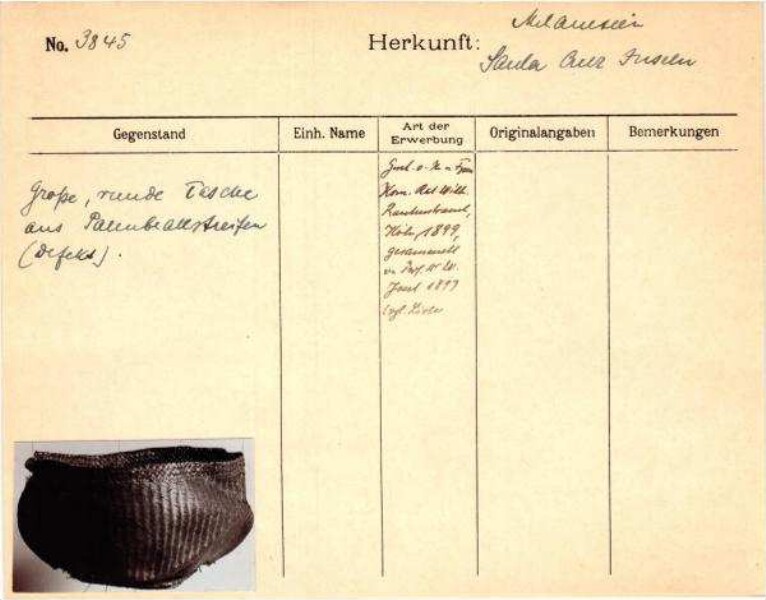 No. 3845
Herkunft: Melanesien
Santa Cruz Inseln
Gegenstand
Einh. Name
Art der Erwerbung
Originalangaben
Bemerkungen
Große, runde Tasche
aus Palmblattstreifen
(defekt).
Gesch. v. H. u. Frau
Kom. Rat Wilh.
Rautenstrauch,
Köln, 1899,
gesammelt
v. Prof. Dr W.
Joest 1897
vgl. Liste